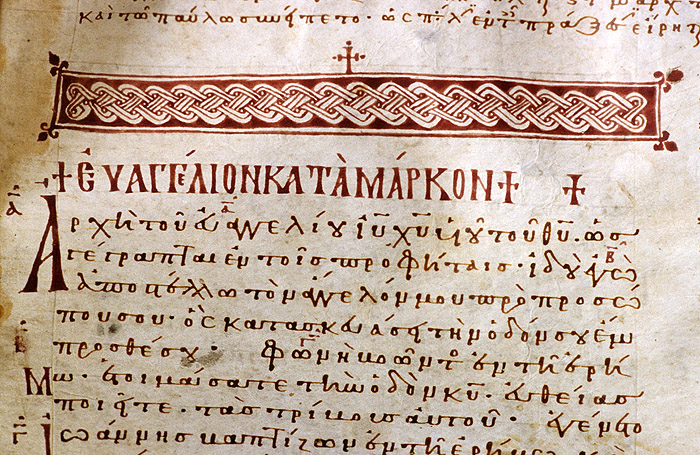 καὶ τῶ παύλω συνήπετο. ὡς πράξ εἴρητ
+ ΕΥΑΓΓΕΛΙΟΝ ΚΑΤΑ ΜΑΡΚΟΝ + +
Ἀρχὴ τοῦ εὐαγγελίου ἰῦ χῦ υἱοῦ τοῦ θῦ· ὡς
γέγραπται ἐν τοῖς προφήταις· ἰδοὺ ἐγὼ
ἀποστέλλω τὸν ἄγγελόν μου πρὸ προσώ
που σου· ὃς κατασκευάσει τὴν ὁδόν σου ἔμ
προσθέν σου· φωνὴ βοῶντος ἐν τῆ ἐρή
μω· ἑτοιμάσατε τὴν ὁδὸν κῦ· εὐθείας
ποιεῖτε τὰς τρίβους αὐτοῦ· ἐγένετο
ἰωάννης βαπτίζων ἐν τῆ ἐρήμω